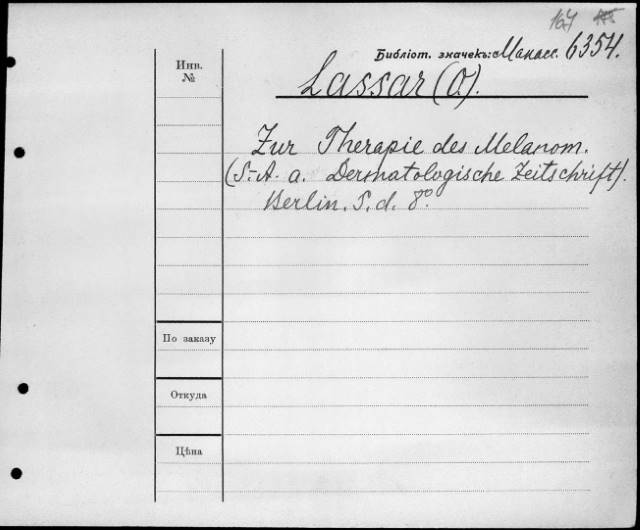 167
Библіот. значекъ: Манасс. 6354.
Инв.
№
Lassar (O).
Zur Therapie des Melanom.
(S.-A. a. Dermatologische Zeitschrift).
Berlin. S. d. 8º.
По заказу
Откуда
Цѣна